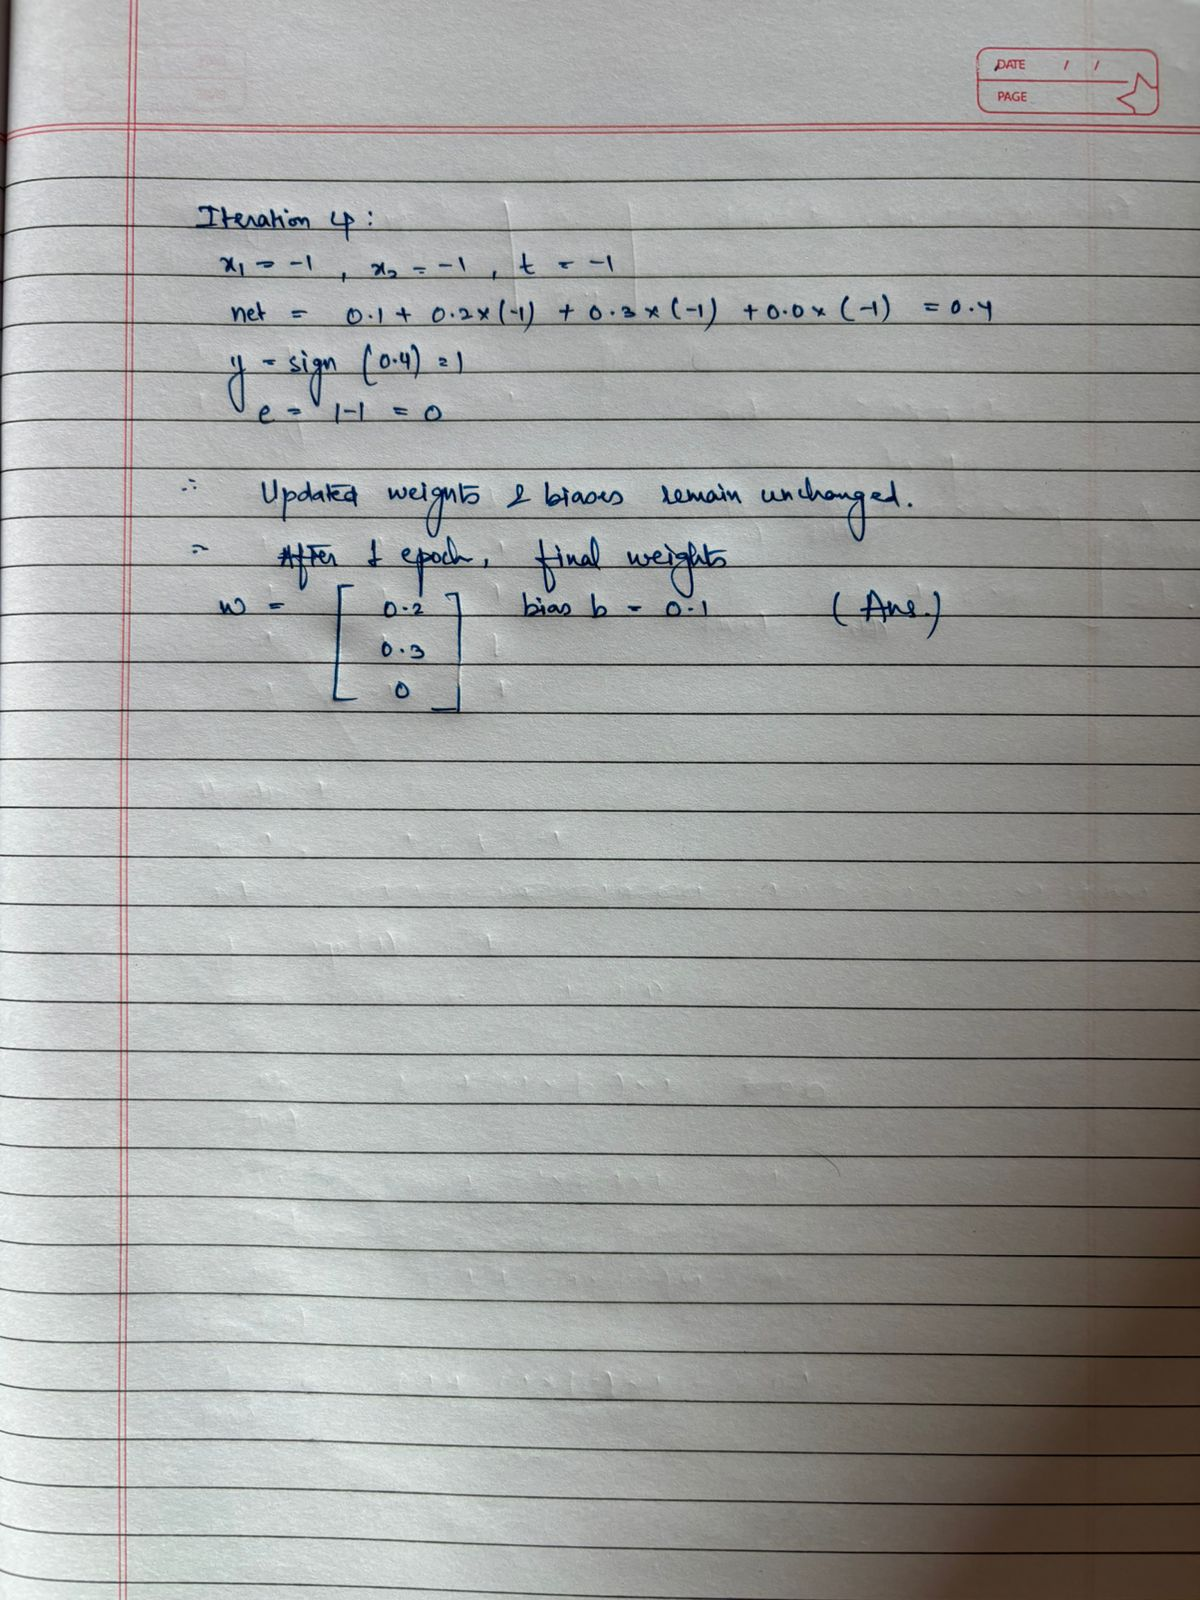 DATE / /
PAGE
Iteration 4:
x₁ = -1, x₂ = -1, t = -1
net = 0.1 + 0.2x(-1) + 0.3x(-1) + 0.0x(-1) = 0.4
y = sign (0.4) = 1
e = 1-1 = 0
∴ Updated weights & biases remain unchanged.
= After 1 epoch, final weights
w = [ 0.2 ] bias b = 0.1 (Ans.)
0.3
0